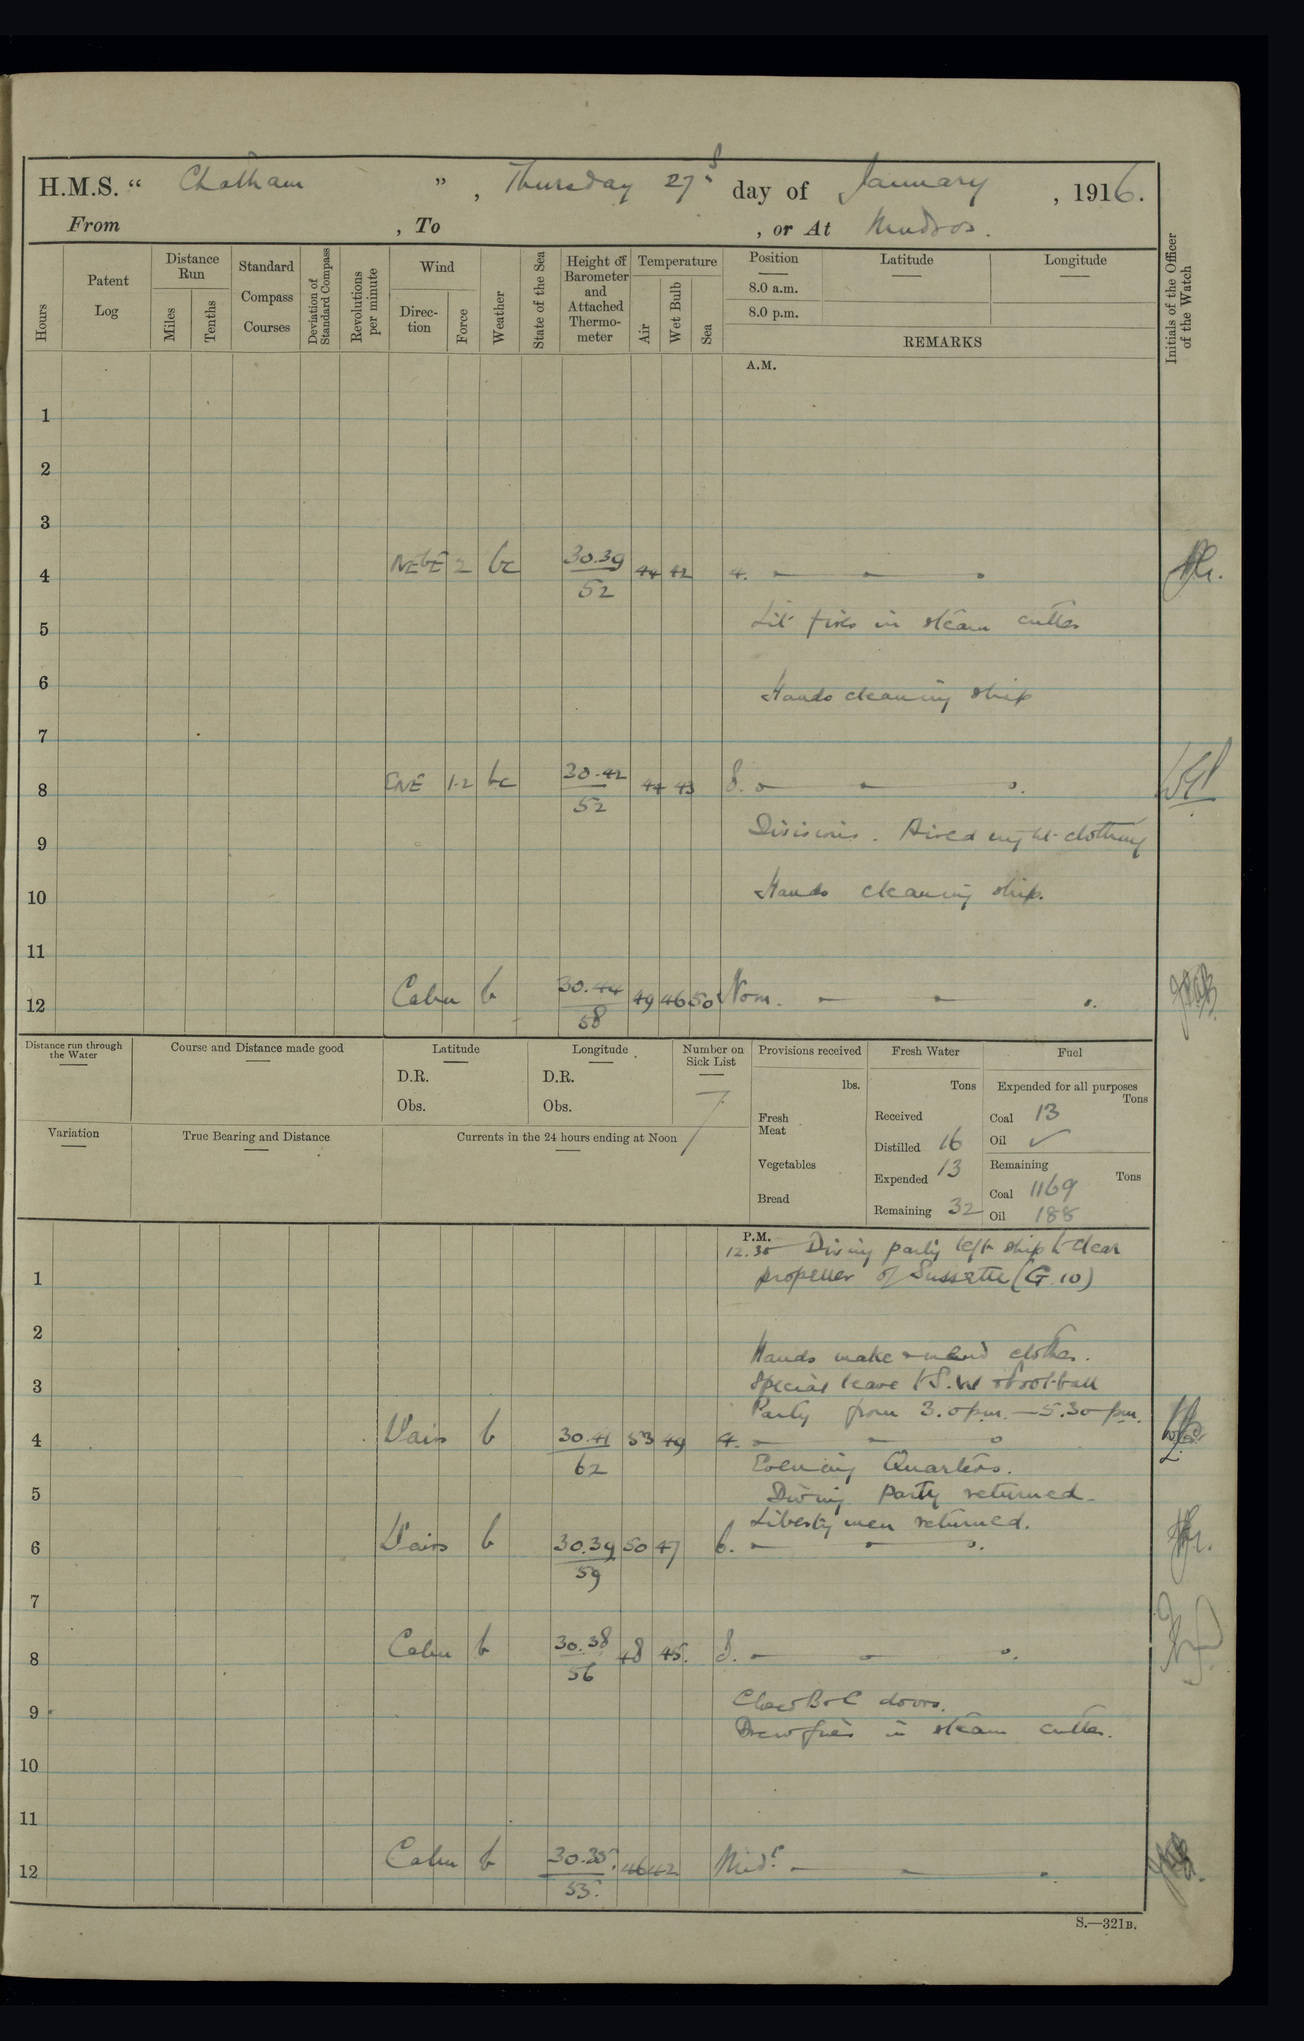 H.M.S. “ Chatham ” , Thursday 27th day of January , 1916.
From , To , or At Mudros.
Hours
Patent Log
Distance Run
Miles
Tenths
Standard Compass Courses
Deviation of Standard Compass
Revolutions per minute
Wind
Direction
Force
Weather
State of the Sea
Height of Barometer and Attached Thermometer
Temperature
Air
Wet Bulb
Sea
Position
8.0 a.m.
8.0 p.m.
Latitude
Longitude
REMARKS
Initials of the Officer of the Watch
A.M.
1
2
3
4 NEbE 2 bc 30.39 44 42 4.
52
5 Lit fires in steam cutter
6 Hands cleaning ship
7
8 ENE 1-2 bc 30.42 44 43 8.
52
9 Divisions. Aired night clothing
10 Hands cleaning ship.
11
12 Calm b 30.44 49 46 50 Noon.
58
Distance run through the Water
Course and Distance made good
Latitude
D.R.
Obs.
Longitude
D.R.
Obs.
Number on Sick List
7
Variation
True Bearing and Distance
Currents in the 24 hours ending at Noon
Provisions received
lbs.
Fresh Meat
Vegetables
Bread
Fresh Water
Tons
Received
Distilled 16
Expended 13
Remaining 32
Fuel
Expended for all purposes
Tons
Coal 13
Oil ✓
Remaining
Tons
Coal 1169
Oil 188
P.M.
12.30 Diving party left ship to clear
1 propeller of (G.10)
2 Hands make & mend clothes.
3 Special leave to football
Party from 3.0 pm. — 5.30 pm.
4 Vairs b 30.41 53 49 4.
62 Evening Quarters.
5 Diving Party returned.
Liberty men returned.
6 Vairs b 30.39 50 47 6.
59
7
8 Calm b 30.38 48 45. 8.
56
9 Close B & C doors.
Drew fires in steam cutter.
10
11
12 Calm b 30.35 46 42 Midt.
53.
S.—321B.